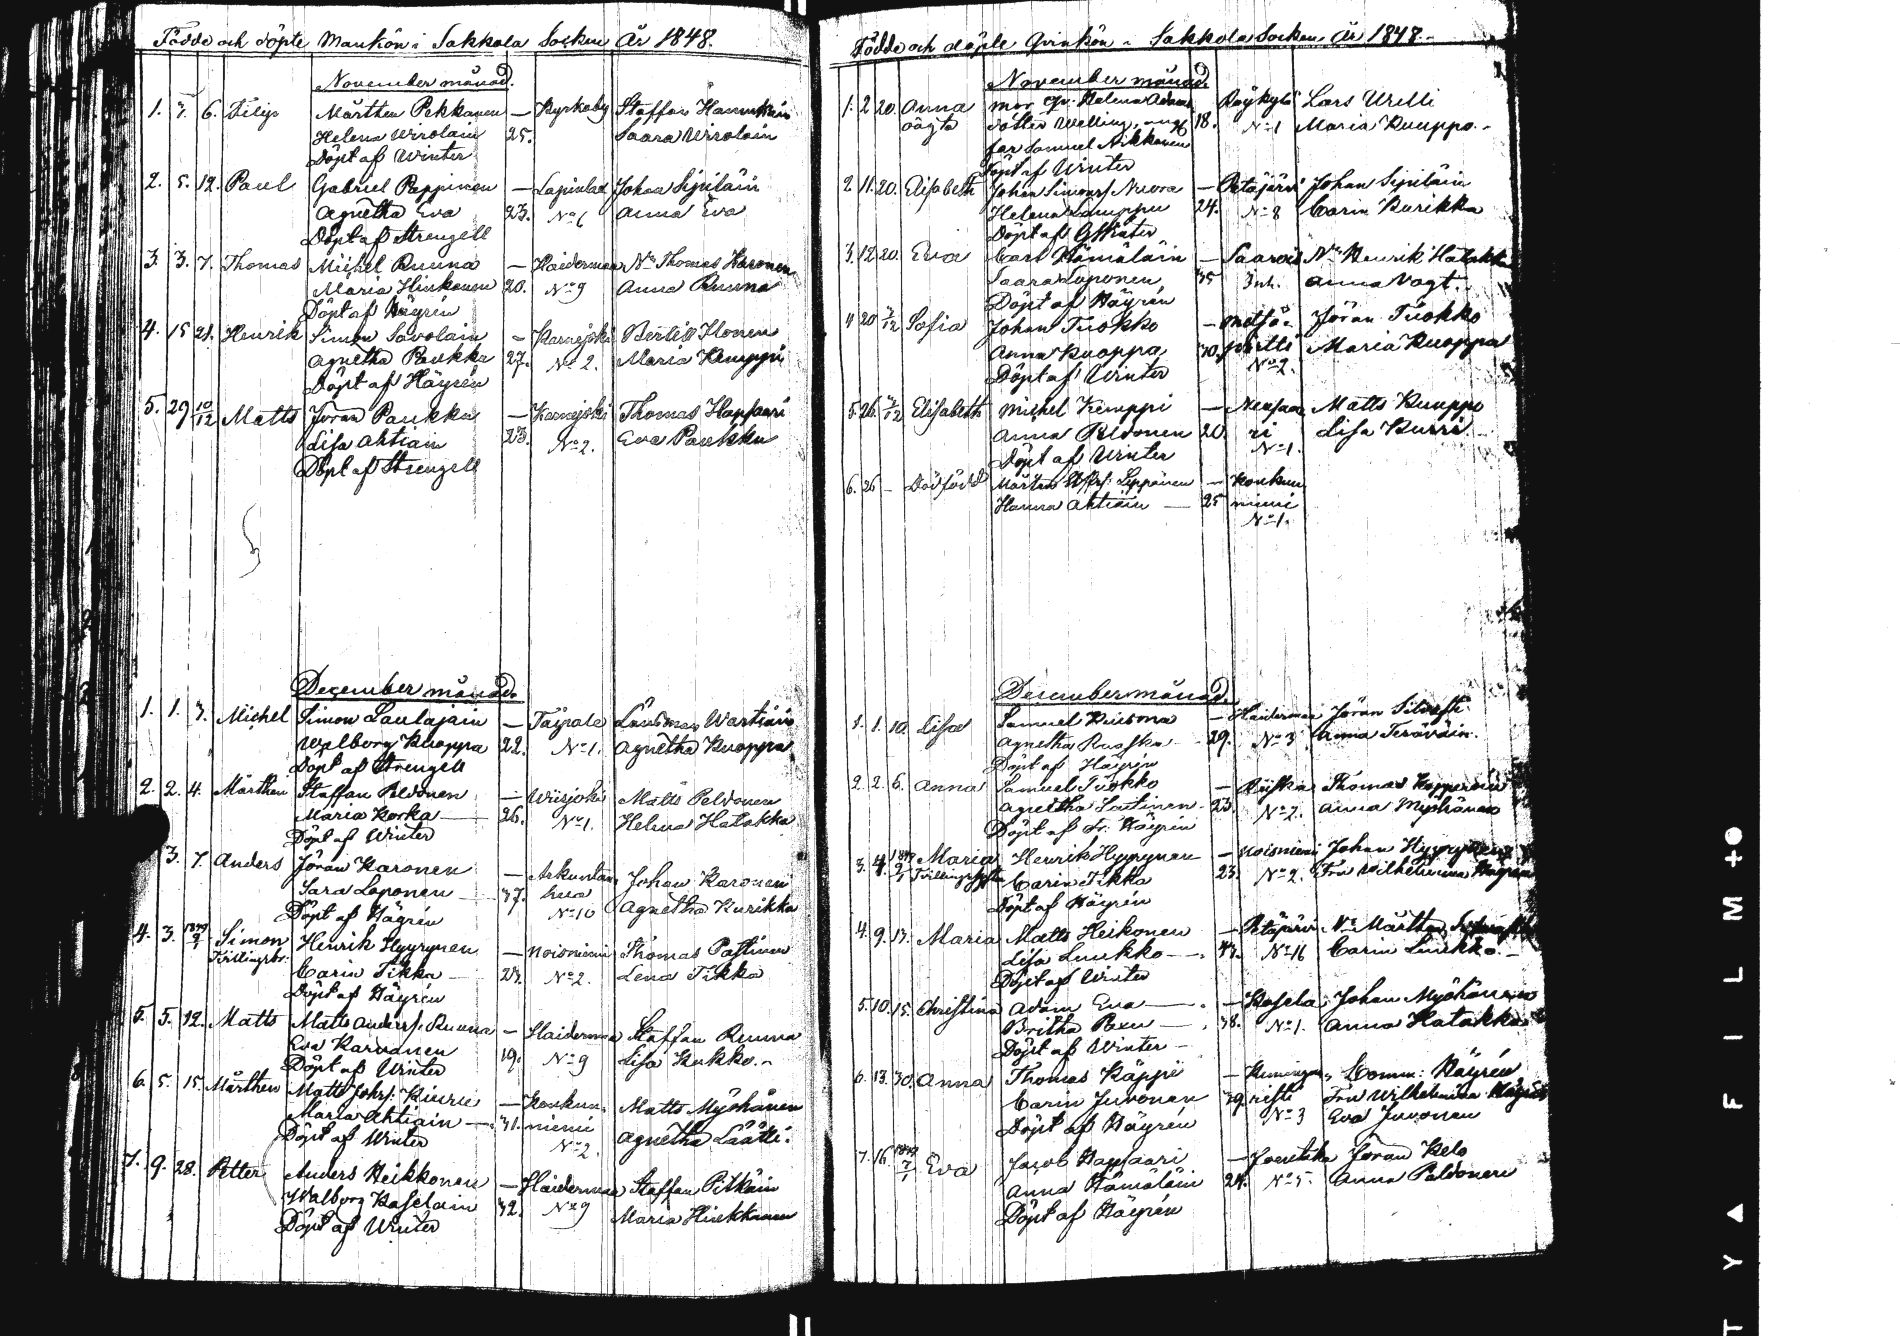 Födde och döpte Mankön i Sakkola Socken År 1848.
November månad.
1. 3. 6. Filip Mårthen Pekkanen — Kyrkoby Staffan Hannukain
Helena Wirolain 25. Saara Wirolain
Döpt af Winter
2. 5. 12. Paul Gabriel Pappinen — Lapinlax Johan Sipiläin
Agnetha Eva 23. No 6 Anna Eva
Döpt af Strengell
3. 3. 7. Thomas Michel Ruuna — Haidermaa No Thomas Karonen
Maria Hinkanen 20. No 9 Anna Ruuna
Döpt af Häyrén
4. 15 21. Henrik Simon Savolain — Karnejoki Bertil Ilonen
Agnetha Paukku 27. No 2. Maria Kemppi
Döpt af Häyrén
5. 29 10/12 Matts Jöran Paukku — Karnejoki Thomas Hapsaari
Lisa Ahtiain 23. No 2. Eva Paukku
Döpt af Strengell
December månad.
1. 1. 3. Michel Simon Laulajain — Taipale Länsman Wartiain
Walborg Kuoppa 22. No 1. Agnetha Kuoppa
Döpt af Strengell
2. 2. 4. Mårthen Staffan Peldonen — Wiisjoki Matts Peldonen
Maria Korka — 26. No 1. Helena Hatakka
Döpt af Winter
3. 7. Anders Jöran Karonen — Johan Karonen
Sara Loponen — 37. No 10 Agnetha Kurikka
Döpt af Häyrén
4. 3. 1849 9/1 Simon Henrik Hyyrynen — Noisniemi Thomas Pastinen
Tvillingsbr. Carin Tikka — 23. No 2. Lena Tikka
Döpt af Häyrén
5. 5. 12. Matts Matts Anderss. Ruuna — Haidermaa Staffan Ruuna
Eva Karvanen 19. No 9 Lisa Kukko.
Döpt af Winter
6. 5. 15. Mårthen Matts Johss. Kiuru — Koukun= Matts Myöhänen
Maria Ahtiain — 31. niemi Agnetha Läätti.
Döpt af Winter No 2.
7. 9. 28. Petter Anders Heikkonen — Haidermaa Staffan Pitkäin
Walborg Kaselain 32. No 9 Maria Hinkkanen
Döpt af Winter
Födde och döpte Qvinkön i Sakkola Socken År 1848.
November månad.
1. 2 20. Anna mor Qv. Helena Adams Röykylä Lars Urelli
oägta dotter Welling, 18. No 1 Maria Kuuppo.
far Samuel Nikkanen
Döpt af Winter
2. 11. 20. Elisabeth Johan Simonss. Nuora — Petäjärvi Johan Sipiläin
Helena Lamppu 24. No 8 Carin Kurikka
Döpt af Winter
3. 12 20. Eva Carl Hämäläin — Saarois No Henrik Hatakka
Saara Loponen 35 Inh. Anna Vogt.
Döpt af Häyrén
4 20 3/12 Sofia Johan Tuokko — Metsä= Jöran Tuokko
Anna Kuoppa 30. pirtti Maria Kuoppa
Döpt af Winter No 2.
5. 26. 3/12 Elisabeth Michel Kemppi — Neusaa Matts Kuuppo
Anna Peldonen 20. ri Lisa Kurri.
Döpt af Winter No 1.
6. 26 — Dödfödd Mårten Leppänen — Koukun
Hanna Ahtiain — 25 niemi
No 1.
December månad.
1. 1. 10. Lisa Samuel Kuisma — Haidermaa Jöran Silvasti
Agnetha Ruoska 29. No 3 Anna Teräväin.
Döpt af Häyrén
2. 2. 6. Anna Samuel Tuokko — Riiska Thomas Kopperoin
Agnetha Lautinen 23. No 2. Anna Myöhänen
Döpt af Fr. Häyrén
3. 4. 1849 9/1 Maria Henrik Hyyrynen — Noisniemi Johan Hyyrynen
Tvillingsyster Carin Tikka 23. No 2. Fru Wilhelmina Häyrén
Döpt af Häyrén
4. 9. 13. Maria Matts Heikonen — Petäjärvi No Mårthen
Lisa Luukko — 43. No 16 Carin Luukko. —
Döpt af Winter
5. 10. 15. Christina Adam Eva — Kasela Johan Myöhänen
Britha Paxu — 38. No 1. Anna Hatakka
Döpt af Winter
6. 13. 30. Anna Thomas Käppi — Comm: Häyrén
Carin Juvonen 39. risti Fru Wilhelmina Häyrén
Döpt af Häyrén No 3 Eva Juvonen
7. 16. 1849 7/1 Eva Jacob Hapsaari — Jöran Kelo
Anna Hämäläin 24. No 5. Anna Peldonen
Döpt af Häyrén
FILM
TY